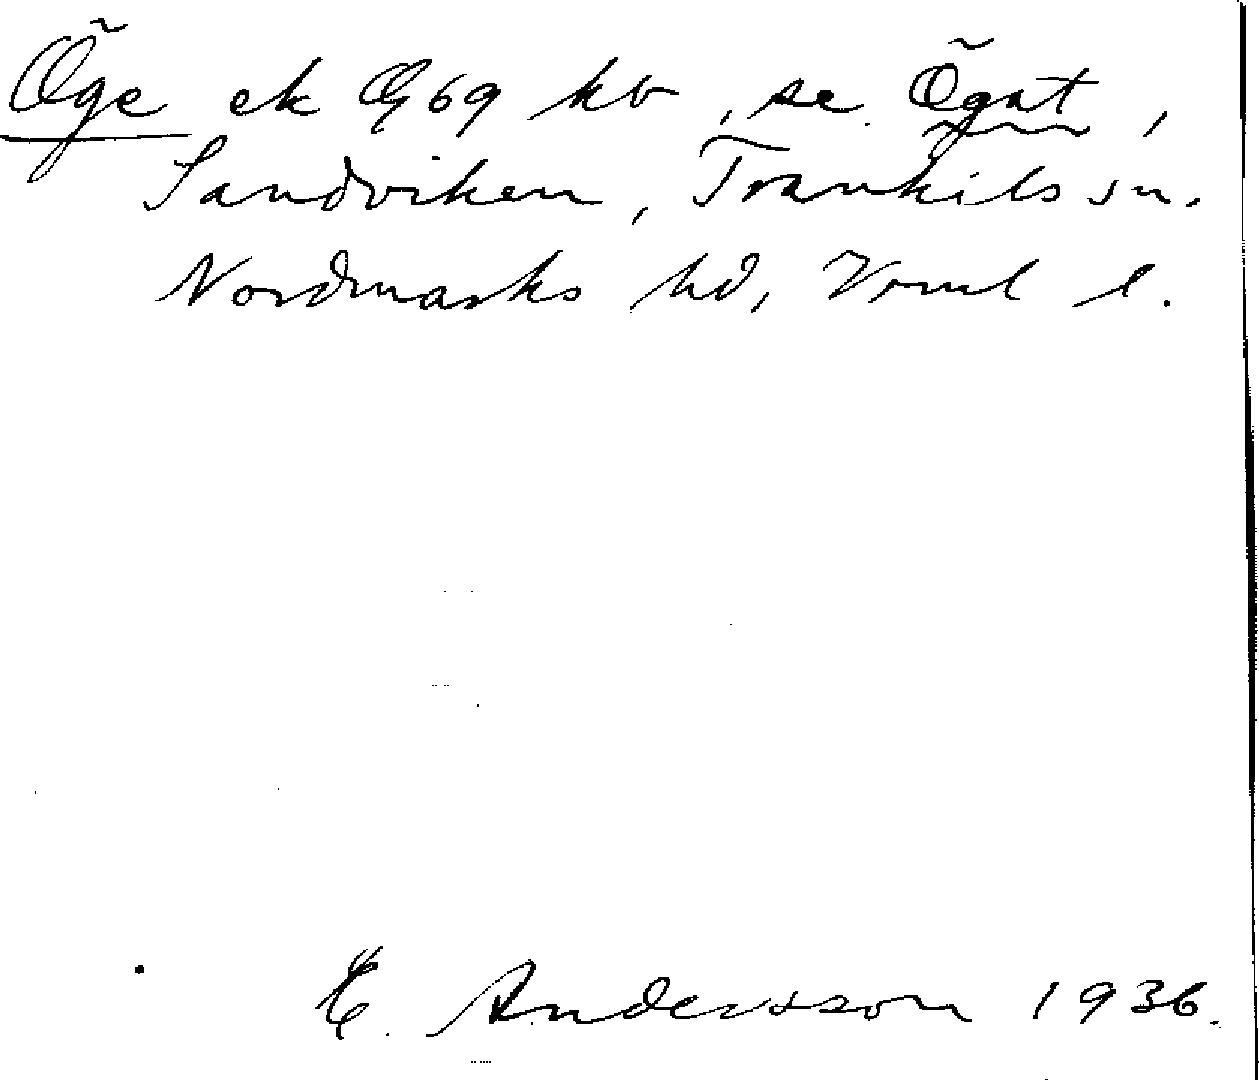 Öge ek G69 kb, se Ögat,
Sandviken, Trankils sn.
Nordmarks hd, Vrml l.
E. Andersson 1936.